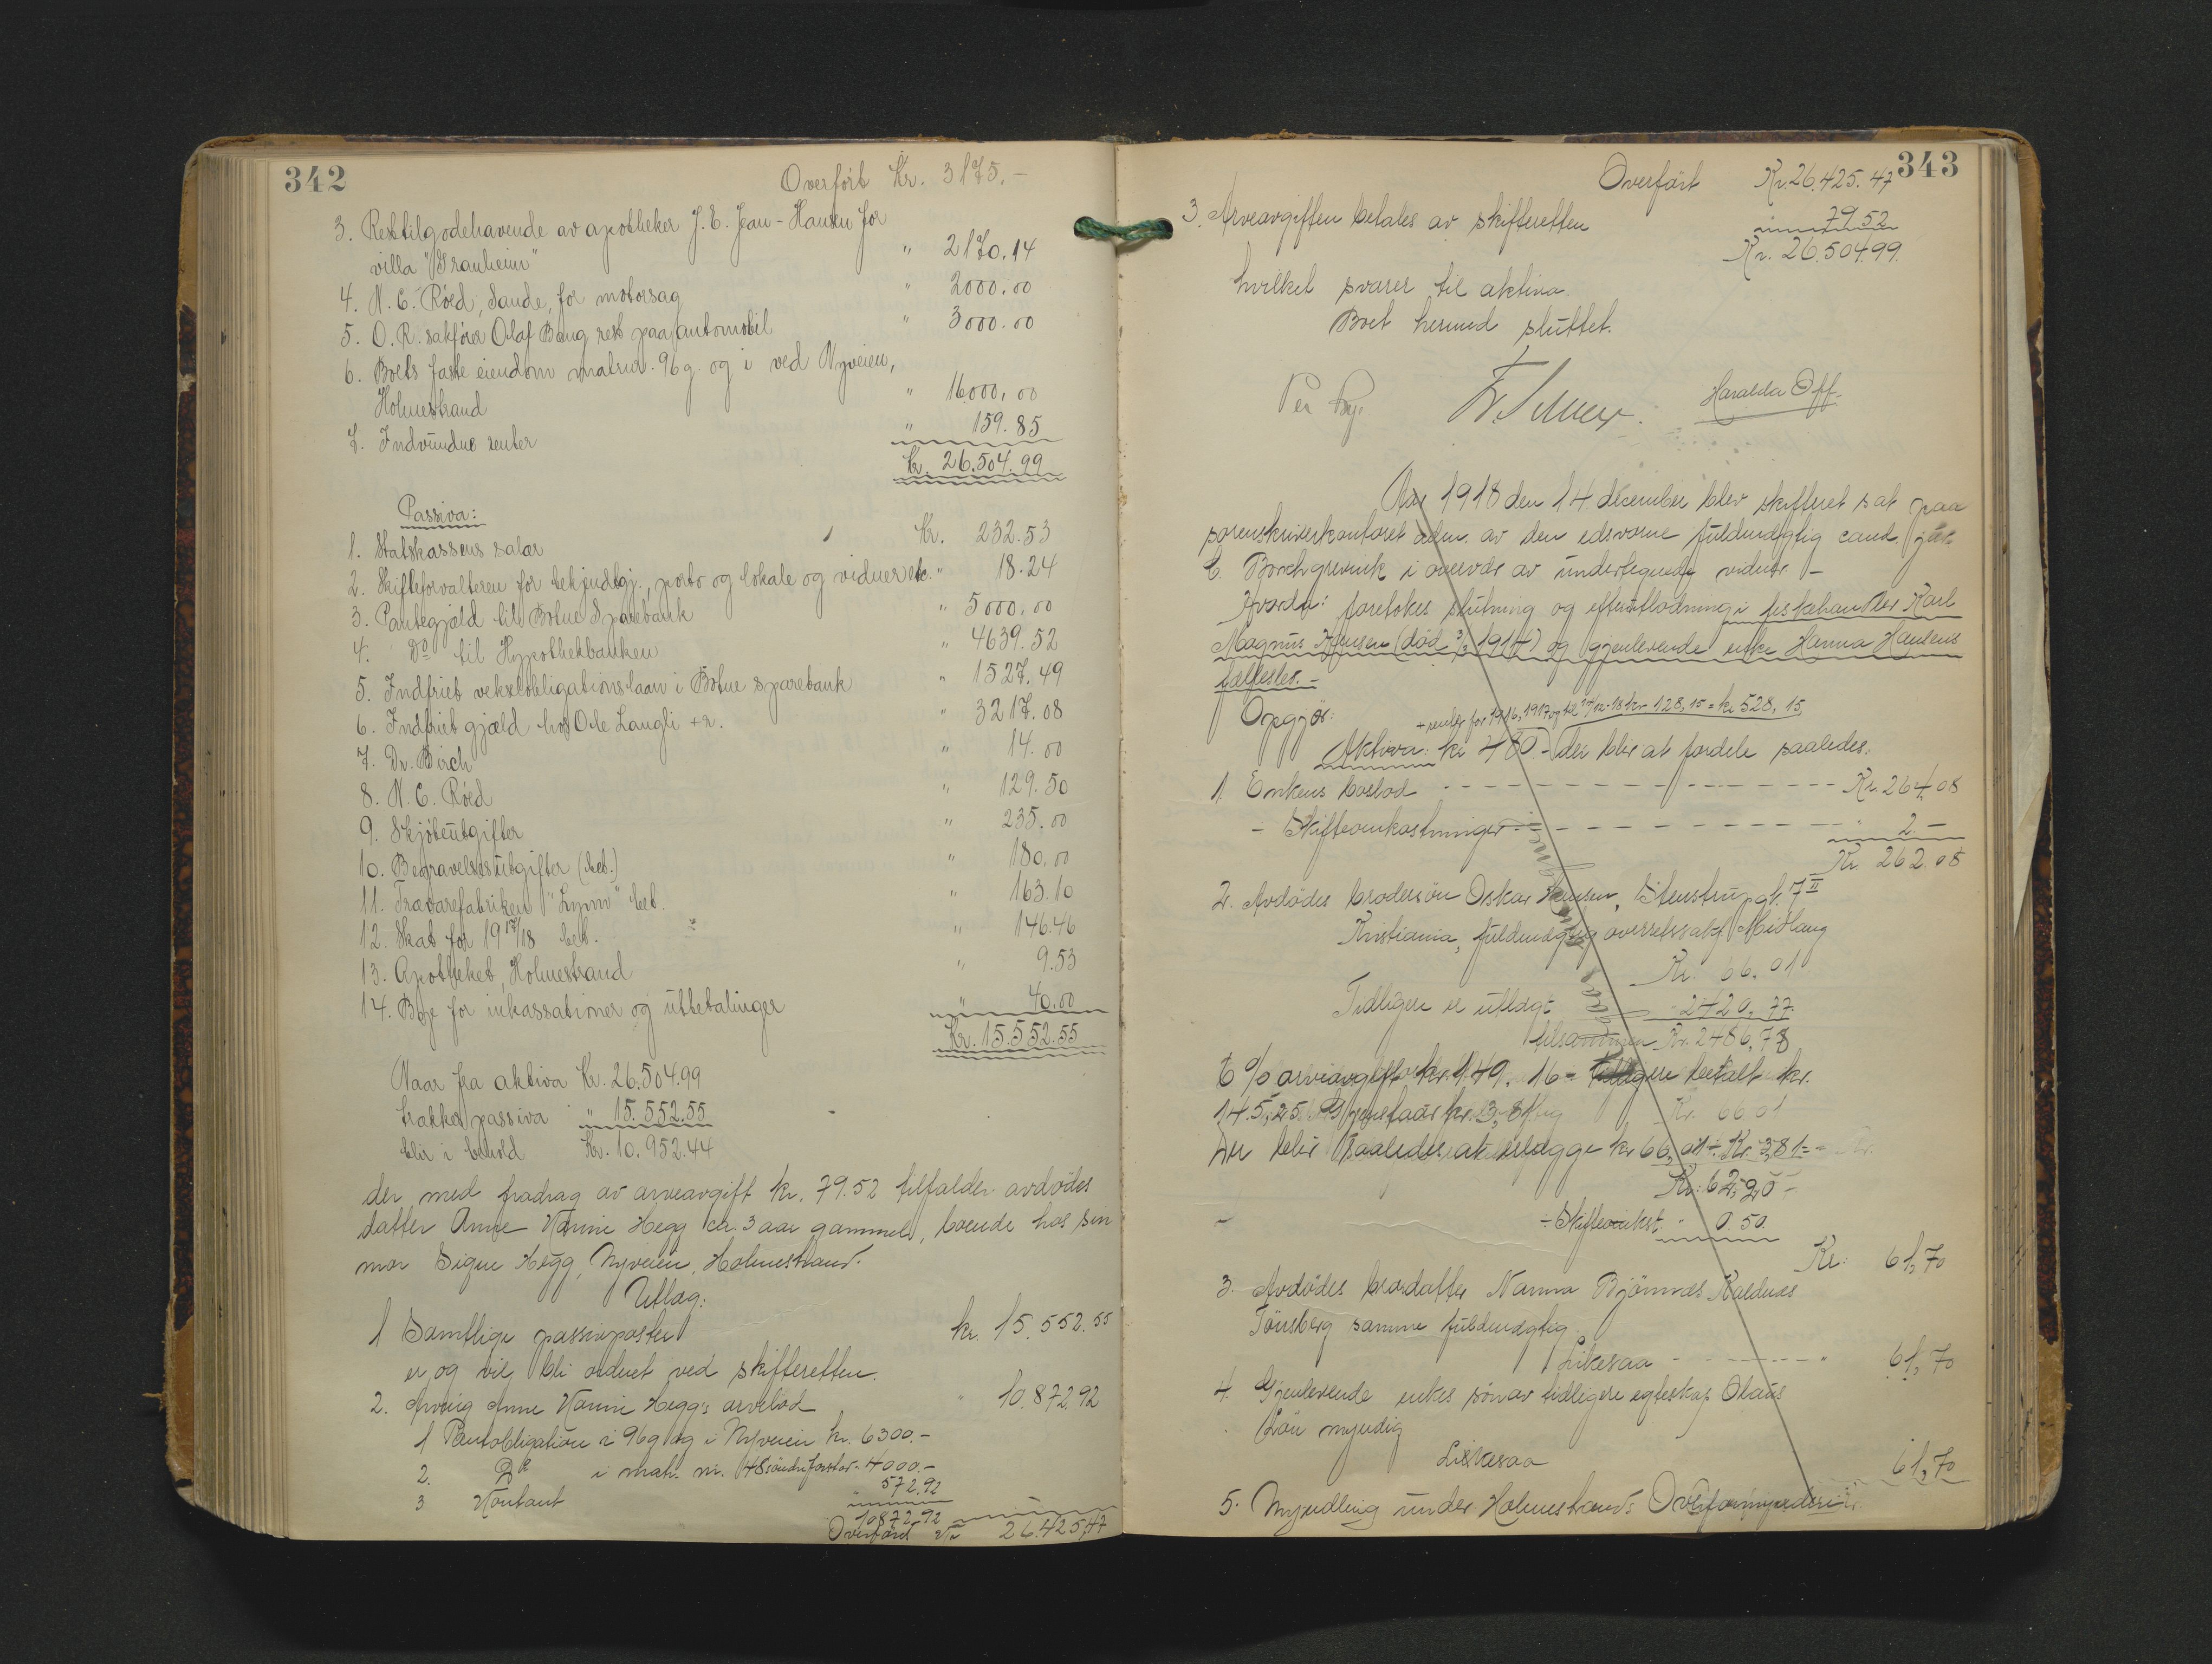 342
Overført Kr. 3175.-
3. Resttilgodehavende av apotheker J. E. Jean-Hansen for
villa "Granheim" " 2170.14
4. N. C. Röed, Sande, for motorsag " 2000.00
5. O. R. sakfører Olaf Bang rest paa automobil " 3000.00
6. Boets faste eiendom matrnr. 96 g. og i ved Nyveien,
Holmestrand " 16000.00
7. Indvundne renter " 159.85
Kr. 26.504.99
Passiva:
1. Statskassens salær Kr. 232.53
2. Skifteforvalteren for bekjendtgj., porto og lokale og vidner etc. " 18.24
3. Pantegjæld til Botne Sparebank " 5000.00
4. Do til Hypothekbanken " 4639.52
5. Indfriet vekselobligationslaan i Botne sparebank " 1527.49
6. Indfriet gjæld hos Ole Langli + r. " 3217.08
7. Dr. Birch " 14.00
8. N. C. Röed " 129.50
9. Skjöteutgifter " 235.00
10. Begravelsesutgifter (bet.) " 180.00
11. Trævarefabriken "Lynn" bet. " 163.10
12. Skat for 1917/18 bet. " 146.46
13. Apotheket, Holmestrand " 9.53
14. Bye for inkassationer og utbetalinger " 40.00
Kr. 15.552.55
Naar fra aktiva Kr. 26.504.99
trækkes passiva " 15.552.55
blir i behold Kr. 10.952.44
der med fradrag av arveavgift kr. 79.52 tilfalder avdødes
datter Anne Karine Hegg ca. 3 aar gammel, boende hos sin
mor Signe Hegg, Nyveien, Holmestrand.
Utlæg:
1 Samtlige passivposter kr. 15.552.55
er og vil bli ordnet ved skifteretten.
2. Arving Anne Karine Hegg's arvelod " 10.872.92
1 Pantobligation i 96 g og i Nyveien kr. 6300.-
2. Do i matr. nr. 48 søndre forstad - 4000.-
3 Kontant " 572.92
10872.92
Overføres Kr 26.425,47
343
Overført Kr. 26.425.47
3. Arveavgiften betales av skifteretten " 79.52
Kr. 26.504.99.
hvilket svarer til aktiva.
Boet hermed sluttet.
Per Bye. Haralda Off.
Aar 1918 den 14. december blev skifteret sat paa
sorenskriverkontoret adm. av den edsvorne fuldmægtig cand. jur.
C. Borchgrevink i overvær av undertegnede vidner -
Hvorda: foretokes slutning og efterutlodning i fiskehandler Karl
Magnus Hansen (død 3/3 1917) og gjenlevende enke Hanna Hansens
fællesbo. -
Opgjør:
+ renter for 1916, 1917 og til 14/12-18 kr 128,15 = kr 528,15,
Aktiva: kr 400 - der blir at fordele saaledes:
1. Enkens boslod Kr 264,08
- Skifteomkostninger " 2.-
Kr 262.08
2. Avdødes brodersøn Oskar Hansen, Stenstrupgt. 7 II
Kristiania, fuldmægtig overretssakf. Midtlang
Kr. 66.01
Tidligere er utlagt - 2420,77
tilsammen Kr. 2486,78
6 % arveavgift kr. 149,16 - tidligere betalt kr.
145,25 gjenstaar kr. 3,81
Der blir saaledes at utlægge kr 66,01 ÷ Kr. 3,81 =
Kr: 62,20 -
÷ Skifteomkst. " 0.50.
Kr: 61,70
3. Avdødes brordatter Nanna Bjönnæs Kaldnæs
Tönsberg samme fuldmægtig
Likesaa " 61,70
4 Gjenlevende enkes søn av tidligere egteskap Olaus
Lön myndig
Likesaa 61,70
5. Myndling under Holmestrands Overformynderi